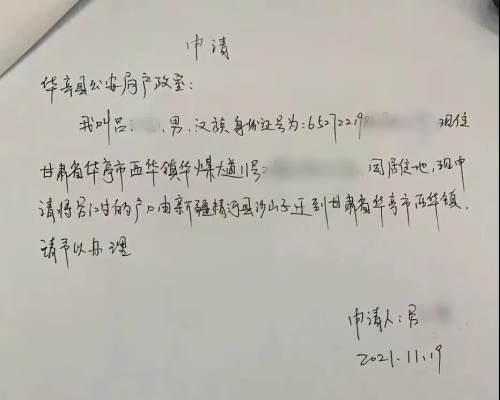 申请
华亭县公安局户政室：
我叫吕，男，汉族身份证号为：65272219 现住
甘肃省华亭市西华镇华煤大道11号 因居住地，现申
请将的户口由新疆精河县沙山子迁到甘肃省华亭市西华镇，
请予以办理
申请人：吕
2021.11.19